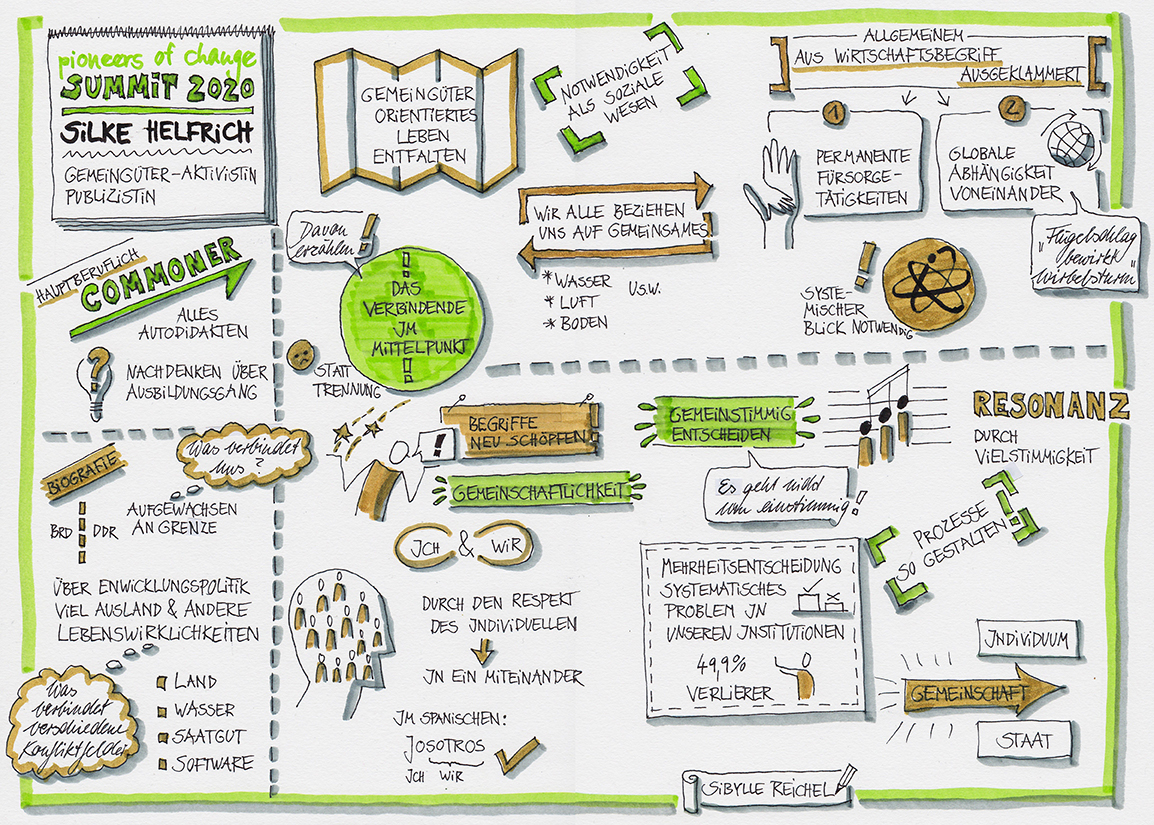 pioneers of change
SUMMIT 2020
SILKE HELFRICH
GEMEINGÜTER-AKTIVISTIN
PUBLIZISTIN
HAUPTBERUFLICH
COMMONER
ALLES
AUTODIDAKTEN
?
NACHDENKEN ÜBER
AUSBILDUNGSGANG
BIOGRAFIE
Was verbindet
uns?
BRD DDR
AUFGEWACHSEN
AN GRENZE
ÜBER ENWICKLUNGSPOLITIK
VIEL AUSLAND & ANDERE
LEBENSWIRKLICHKEITEN
Was
verbindet
verschiedene
Konfliktfelder
LAND
WASSER
SAATGUT
SOFTWARE
GEMEINGÜTER
ORIENTIERTES
LEBEN
ENTFALTEN
NOTWENDIGKEIT
ALS SOZIALE
WESEN
Davon
erzählen!
!
DAS
VERBINDENDE
IM
MITTELPUNKT
!
STATT
TRENNUNG
WIR ALLE BEZIEHEN
UNS AUF GEMEINSAMES!
* WASSER
* LUFT
* BODEN
U.S.W.
ALLGEMEINEM
AUS WIRTSCHAFTSBEGRIFF
AUSGEKLAMMERT
1
PERMANENTE
FÜRSORGE-
TÄTIGKEITEN
2
GLOBALE
ABHÄNGIGKEIT
VONEINANDER
„Flügelschlag
bewirkt
Wirbelsturm"
!
SYSTE-
MISCHER
BLICK NOTWENDIG
!
BEGRIFFE
NEU SCHÖPFEN
GEMEINSCHAFTLICHKEIT
ICH & WIR
DURCH DEN RESPEKT
DES INDIVIDUELLEN
IN EIN MITEINANDER
IM SPANISCHEN:
JOSOTROS
ICH WIR
GEMEINSTIMMIG
ENTSCHEIDEN
Es geht nicht
um einstimmig!
MEHRHEITSENTSCHEIDUNG
SYSTEMATISCHES
PROBLEM IN
UNSEREN INSTITUTIONEN
49,9%
VERLIERER
RESONANZ
DURCH
VIELSTIMMIGKEIT
PROZESSE
SO GESTALTEN!
INDIVIDUUM
GEMEINSCHAFT
STAAT
SIBYLLE REICHEL